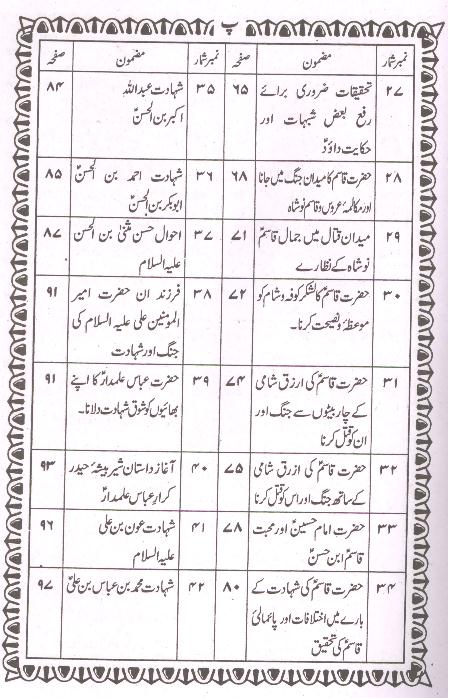 پ
نمبر شمار مضمون صفحہ
۲۷ تحقیقات ضروری برائے ۶۵
رفع بعض شبہات اور
حکایت داؤدؑ
۲۸ حضرت قاسمؑ کا میدان جنگ میں جانا ۶۸
اور مکالمہٴ عروس و قاسم نوشاہ
۲۹ میدان قتال میں جمال قاسمؑ ۷۱
نوشاہ کے نظارے
۳۰ حضرت قاسمؑ کا لشکر کوفہ و شام کو ۷۲
موعظہ و نصیحت کرنا۔
۳۱ حضرت قاسمؑ کی ارزق شامی ۷۴
کے چار بیٹوں سے جنگ اور
ان کو قتل کرنا
۳۲ حضرت قاسمؑ کی ازرق شامی ۷۵
کے ساتھ جنگ اور اس کو قتل کرنا
۳۳ حضرت امام حسینؑ اور محبت ۷۸
قاسمؑ ابن حسنؑ
۳۴ حضرت قاسمؑ کی شہادت کے ۸۰
بارے میں اختلافات اور پائمالیٴ
قاسمؑ کی تحقیق
نمبر شمار مضمون صفحہ
۳۵ شہادت عبداللہ ۸۴
اکبر بن الحسنؑ
۳۶ شہادت احمد بن الحسنؑ ۸۵
ابوبکر بن الحسنؑ
۳۷ احوال حسن مثنیٰ بن الحسن ۸۷
علیہ السلام
۳۸ فرزند ان حضرت امیر ۹۱
المومنین علی علیہ السلام کی
جنگ اور شہادت
۳۹ حضرت عباس علمدارؑ کا اپنے ۹۱
بھائیوں کو شوق شہادت دلانا۔
۴۰ آغاز داستان شیر بیشہٴ حیدر ۹۳
کرار عباس علمدارؑ
۴۱ شہادت عون بن علی ۹۶
علیہ السلام
۴۲ شہادت محمد بن عباس بن علیؑ ۹۷